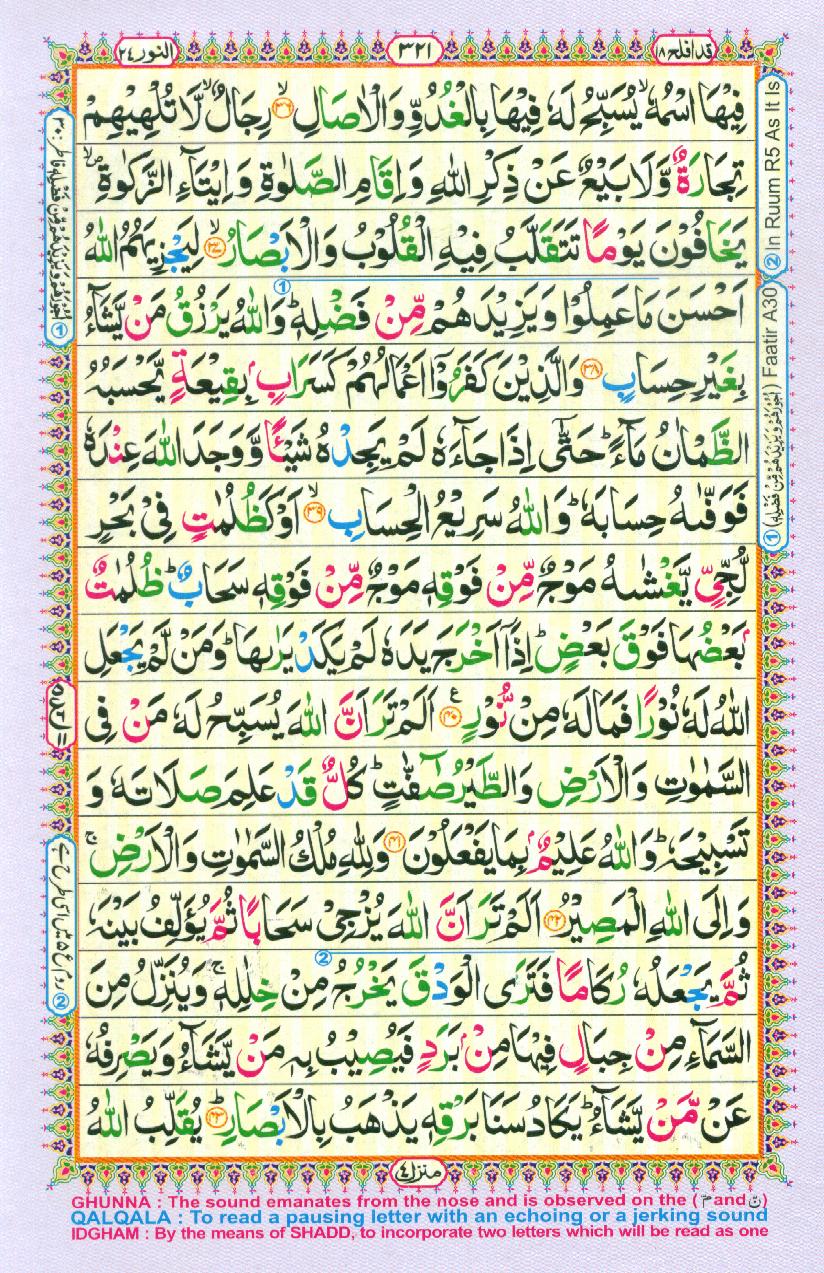 النور ٢٤
٣٢١
قد افلح ١٨
فِيْهَا اسْمُهٗ ۙ يُسَبِّحُ لَهٗ فِيْهَا بِالْغُدُوِّ وَالْاٰصَالِ ۙ﴿۳۶﴾ رِجَالٌ ۙ لَّا تُلْهِيْهِمْ
تِجَارَةٌ وَّلَا بَيْعٌ عَنْ ذِكْرِ اللّٰهِ وَاِقَامِ الصَّلٰوةِ وَاِيْتَآءِ الزَّكٰوةِ ۪ۙ
يَخَافُوْنَ يَوْمًا تَتَقَلَّبُ فِيْهِ الْقُلُوْبُ وَالْاَبْصَارُ ۙ﴿۳۷﴾ لِيَجْزِيَهُمُ اللّٰهُ
اَحْسَنَ مَا عَمِلُوْا وَيَزِيْدَهُمْ مِّنْ فَضْلِهٖ ؕ وَاللّٰهُ يَرْزُقُ مَنْ يَّشَآءُ
بِغَيْرِ حِسَابٍ ﴿۳۸﴾ وَالَّذِيْنَ كَفَرُوْۤا اَعْمَالُهُمْ كَسَرَابٍۭ بِقِيْعَةٍ يَّحْسَبُهُ
الظَّمْاٰنُ مَآءً ؕ حَتّٰۤى اِذَا جَآءَهٗ لَمْ يَجِدْهُ شَيْـًٔا وَّوَجَدَ اللّٰهَ عِنْدَهٗ
فَوَفّٰىهُ حِسَابَهٗ ؕ وَاللّٰهُ سَرِيْعُ الْحِسَابِ ۙ﴿۳۹﴾ اَوْ كَظُلُمٰتٍ فِيْ بَحْرٍ
لُّجِّيٍّ يَّغْشٰىهُ مَوْجٌ مِّنْ فَوْقِهٖ مَوْجٌ مِّنْ فَوْقِهٖ سَحَابٌ ؕ ظُلُمٰتٌۢ
بَعْضُهَا فَوْقَ بَعْضٍ ؕ اِذَاۤ اَخْرَجَ يَدَهٗ لَمْ يَكَدْ يَرٰىهَا ؕ وَمَنْ لَّمْ يَجْعَلِ
اللّٰهُ لَهٗ نُوْرًا فَمَا لَهٗ مِنْ نُّوْرٍ ﴿۴۰﴾ ع اَلَمْ تَرَ اَنَّ اللّٰهَ يُسَبِّحُ لَهٗ مَنْ فِي
السَّمٰوٰتِ وَالْاَرْضِ وَالطَّيْرُ صٰٓفّٰتٍ ؕ كُلٌّ قَدْ عَلِمَ صَلَاتَهٗ وَ
تَسْبِيْحَهٗ ؕ وَاللّٰهُ عَلِيْمٌۢ بِمَا يَفْعَلُوْنَ ﴿۴۱﴾ وَلِلّٰهِ مُلْكُ السَّمٰوٰتِ وَالْاَرْضِ ۚ
وَاِلَى اللّٰهِ الْمَصِيْرُ ﴿۴۲﴾ اَلَمْ تَرَ اَنَّ اللّٰهَ يُزْجِيْ سَحَابًا ثُمَّ يُؤَلِّفُ بَيْنَهٗ
ثُمَّ يَجْعَلُهٗ رُكَامًا فَتَرَى الْوَدْقَ يَخْرُجُ مِنْ خِلٰلِهٖ ۚ وَيُنَزِّلُ مِنَ
السَّمَآءِ مِنْ جِبَالٍ فِيْهَا مِنْۢ بَرَدٍ فَيُصِيْبُ بِهٖ مَنْ يَّشَآءُ وَيَصْرِفُهٗ
عَنْ مَّنْ يَّشَآءُ ؕ يَكَادُ سَنَا بَرْقِهٖ يَذْهَبُ بِالْاَبْصَارِ ؕ﴿۴۳﴾ يُقَلِّبُ اللّٰهُ
② In Ruum R5 As It Is
① Faatir A30
منزل ٤
GHUNNA : The sound emanates from the nose and is observed on the ( م and ن )
QALQALA : To read a pausing letter with an echoing or a jerking sound
IDGHAM : By the means of SHADD, to incorporate two letters which will be read as one